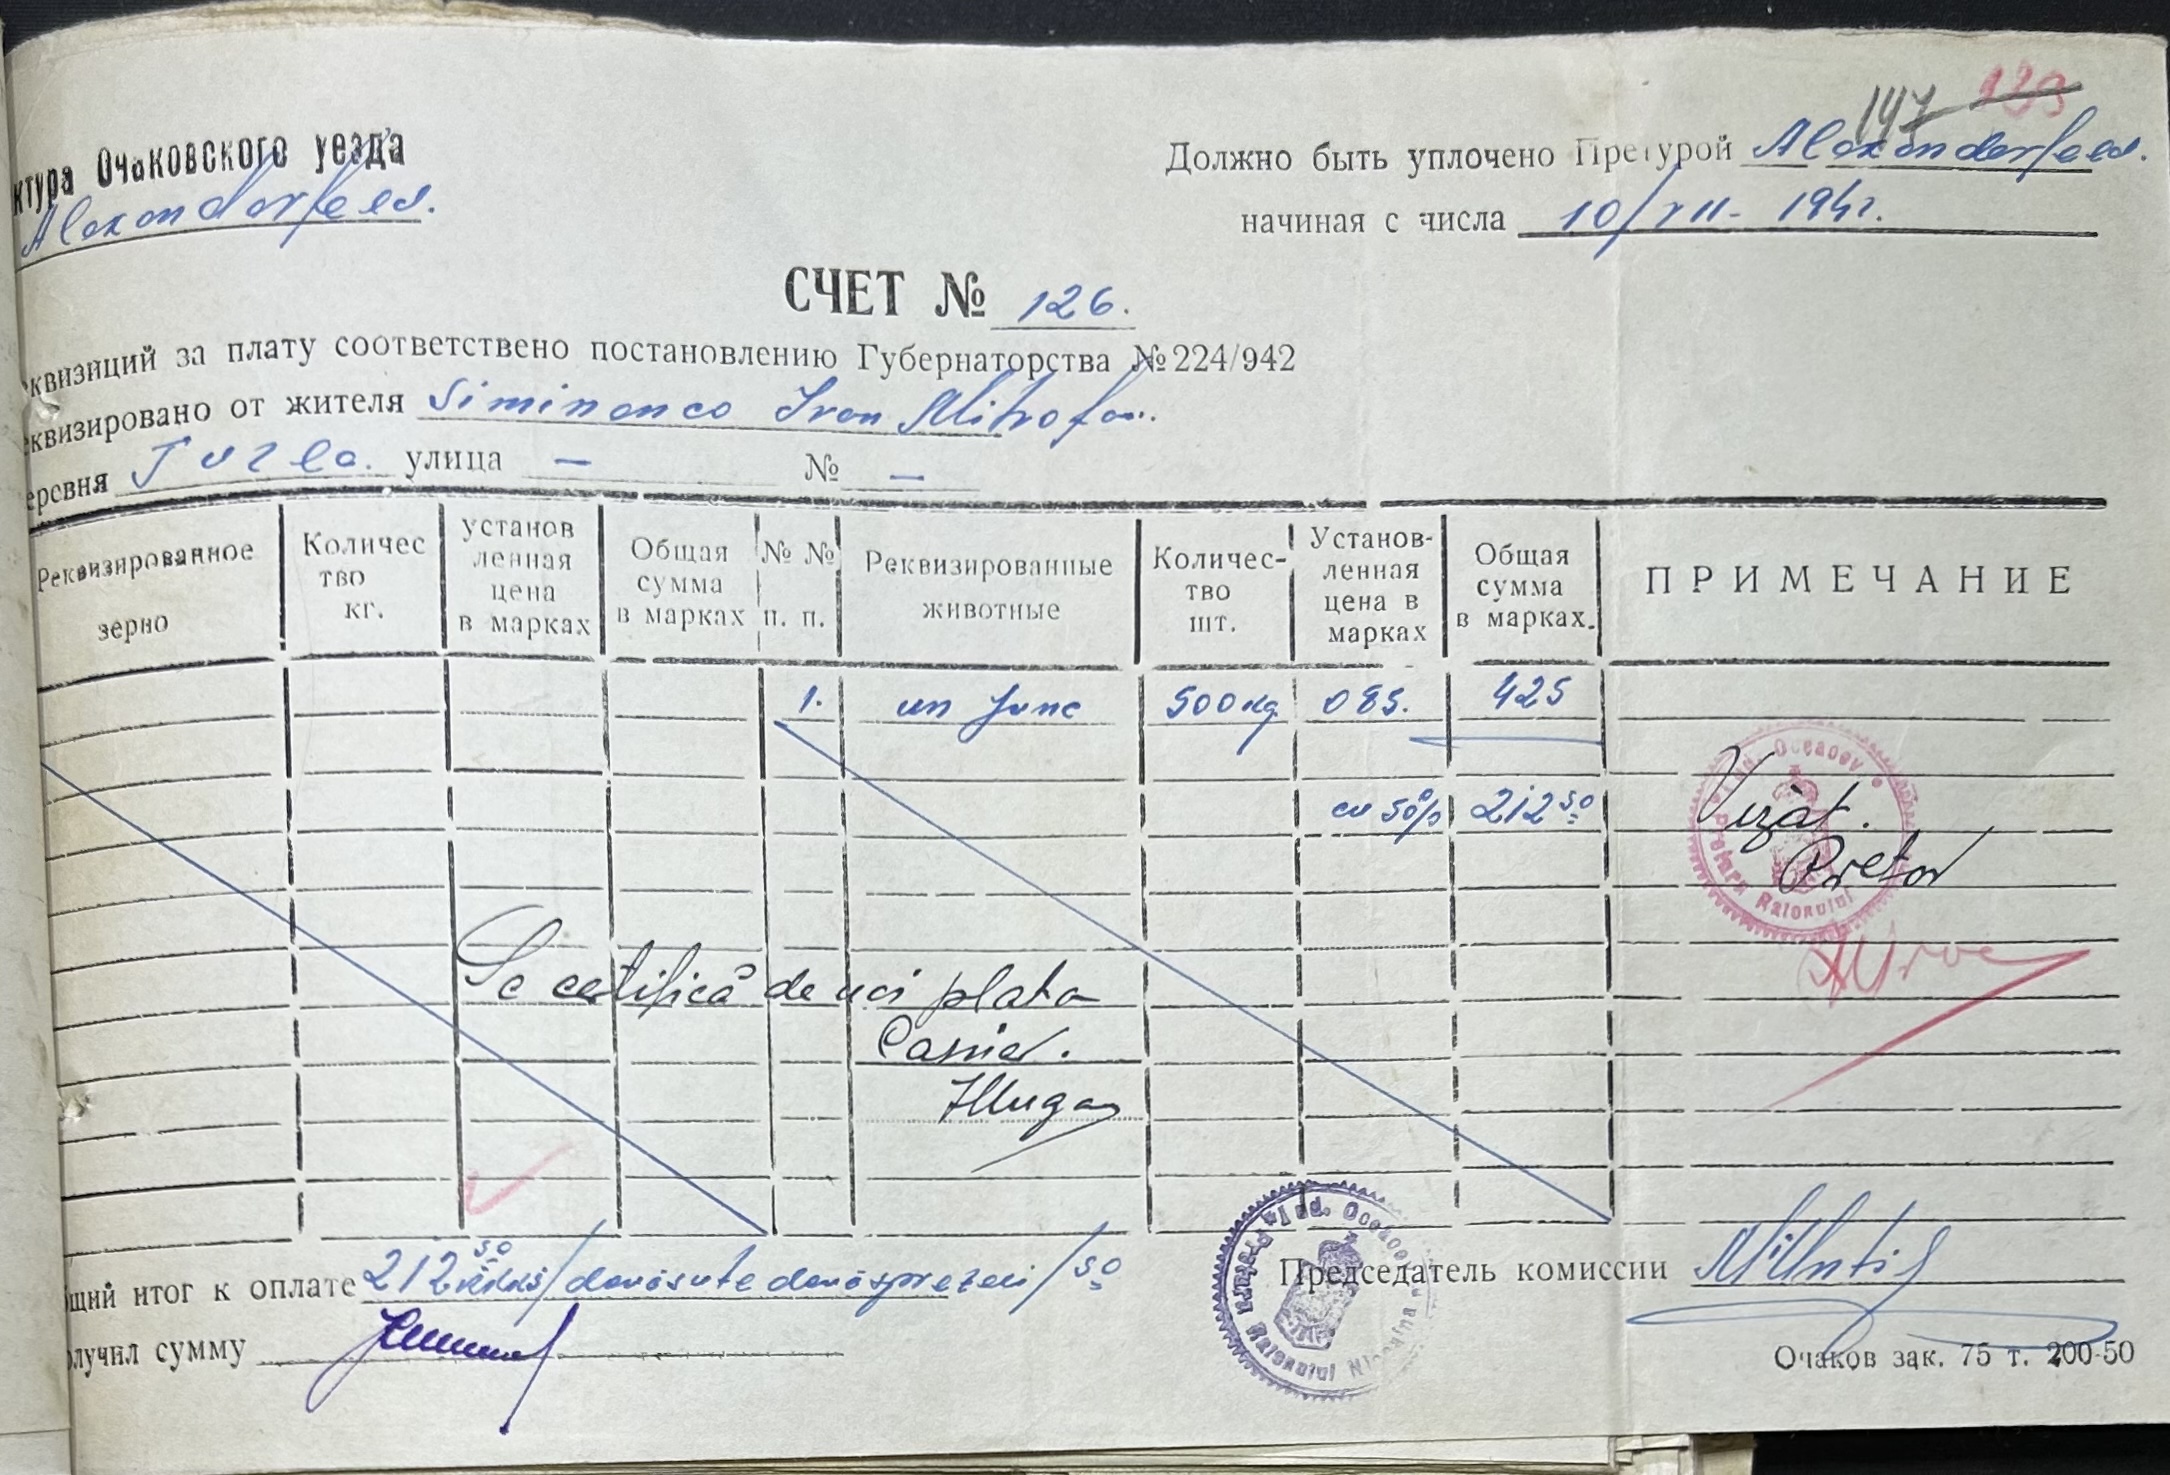 147 139
ктура Очаковского уезда
Alexanderfeld.
Должно быть уплочено Претурой Alexanderfeld.
начиная с числа 10/VII- 1942.
СЧЕТ № 126.
еквизиций за плату соответствено постановлению Губернаторства №224/942
еквизировано от жителя Siminenco Ivan Mitrofan.
еревня Tuzla. улица — № —
Реквизированное зерно
Количес тво кг.
установ ленная цена в марках
Общая сумма в марках
№ № п. п.
Реквизированные животные
Количес- тво шт.
Установ- ленная цена в марках
Общая сумма в марках.
ПРИМЕЧАНИЕ
1. un junc 500 kg 085. 425
cu 50% 212 50
Vizat.
Pretor
Pretura Raionului Jud. Oceacov
Se certifică de noi plata
Casier.
бщий итог к оплате 212 50 / douăsute douăsprezeci / 50
олучил сумму
Председатель комиссии
Pretura Raionului Jud. Oceacov
Очаков зак. 75 т. 200-50